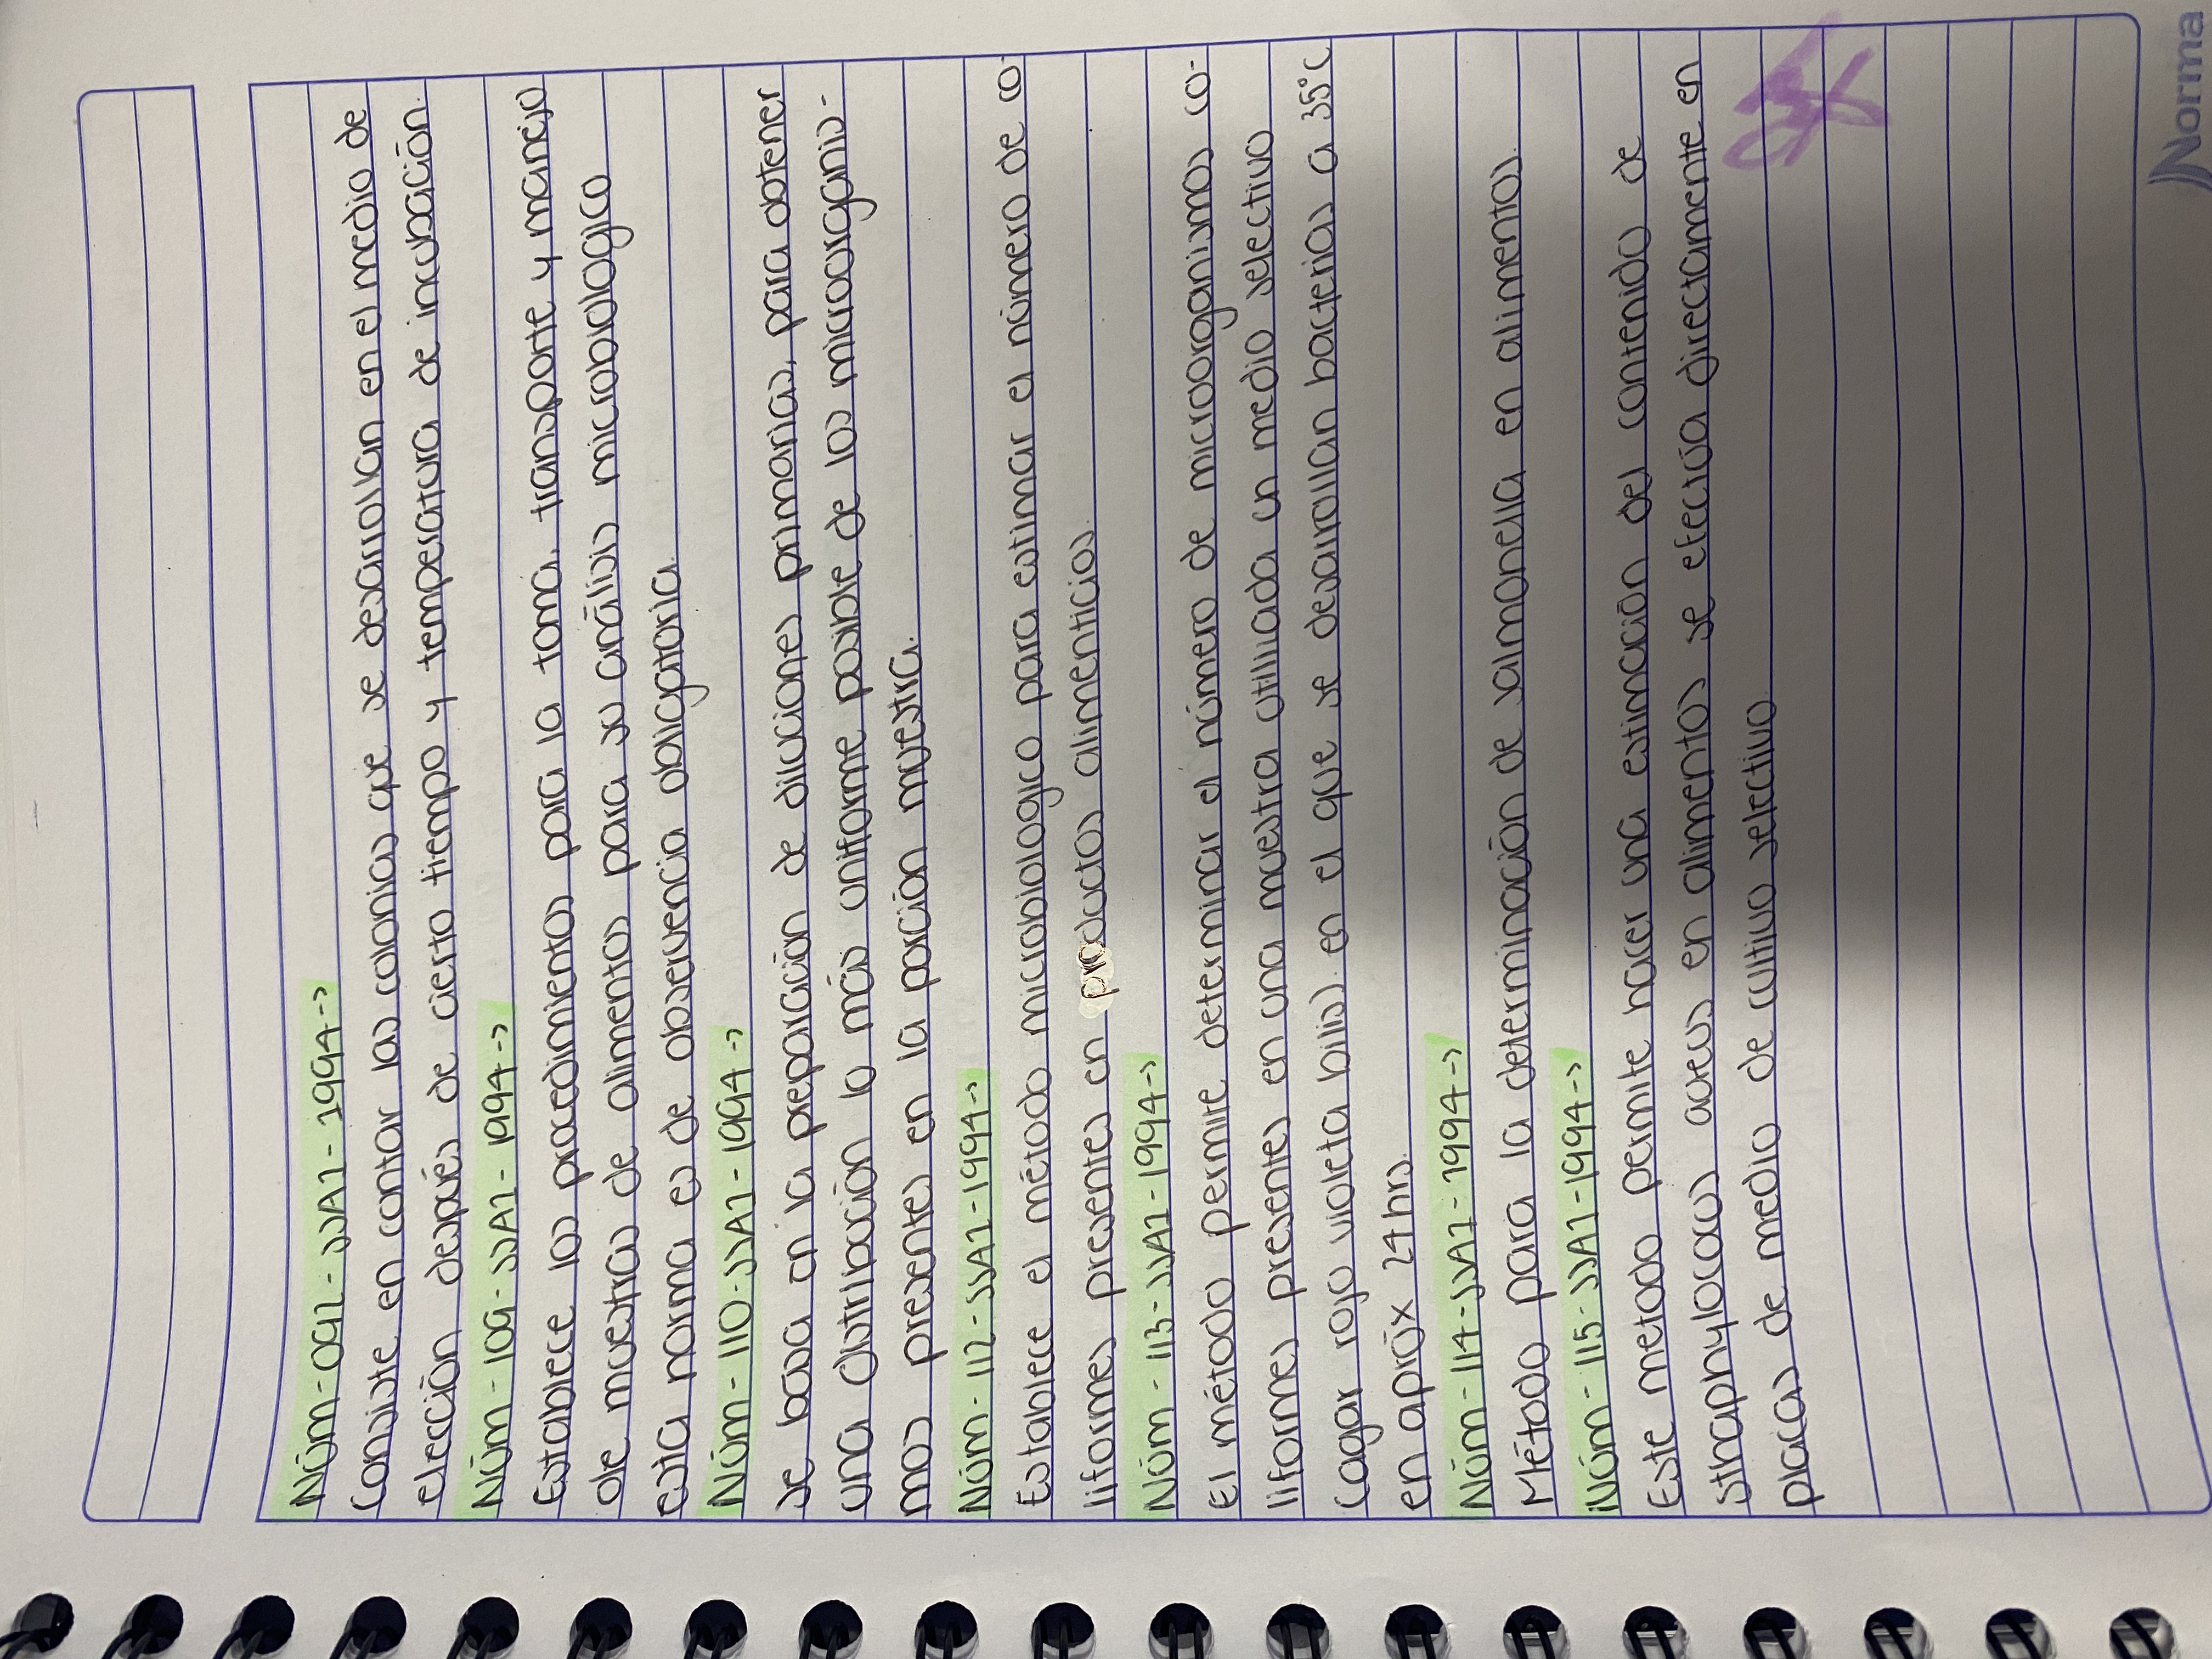 Núm-092-SSA1-1994->
Consiste en contar las colonias que se desarrollan en el medio de
elección después de cierto tiempo y temperatura de incubación.
Núm-109-SSA1-1994->
Establece los procedimientos para la toma, transporte y manejo
de muestras de alimentos para su análisis microbiológico
esta norma es de observencia obligatoria.
Núm-110-SSA1-1994->
Se basa en la preparación de diluciones primarias, para obtener
una distribución lo más uniforme posible de los microorganis-
mos presentes en la porción muestra.
Núm-112-SSA1-1994->
Establece el método microbiológico para estimar el número de co-
liformes presentes en productos alimenticios.
Núm-113-SSA1-1994->
El método permite determinar el número de microorganismos co-
liformes presentes en una muestra utilizada en medio selectivo
(agar rojo violeta bilis) en el que se desarrollan bacterias a 35°C
en apróx 24 hrs.
Núm-114-SSA1-1994->
Método para la determinación de salmonella en alimentos.
Núm-115-SSA1-1994->
Este metodo permite hacer una estimación del contenido de
Sthaphylococus aureus en alimentos se efectúa directamente en
placas de medio de cultivo selectivo.
Norma